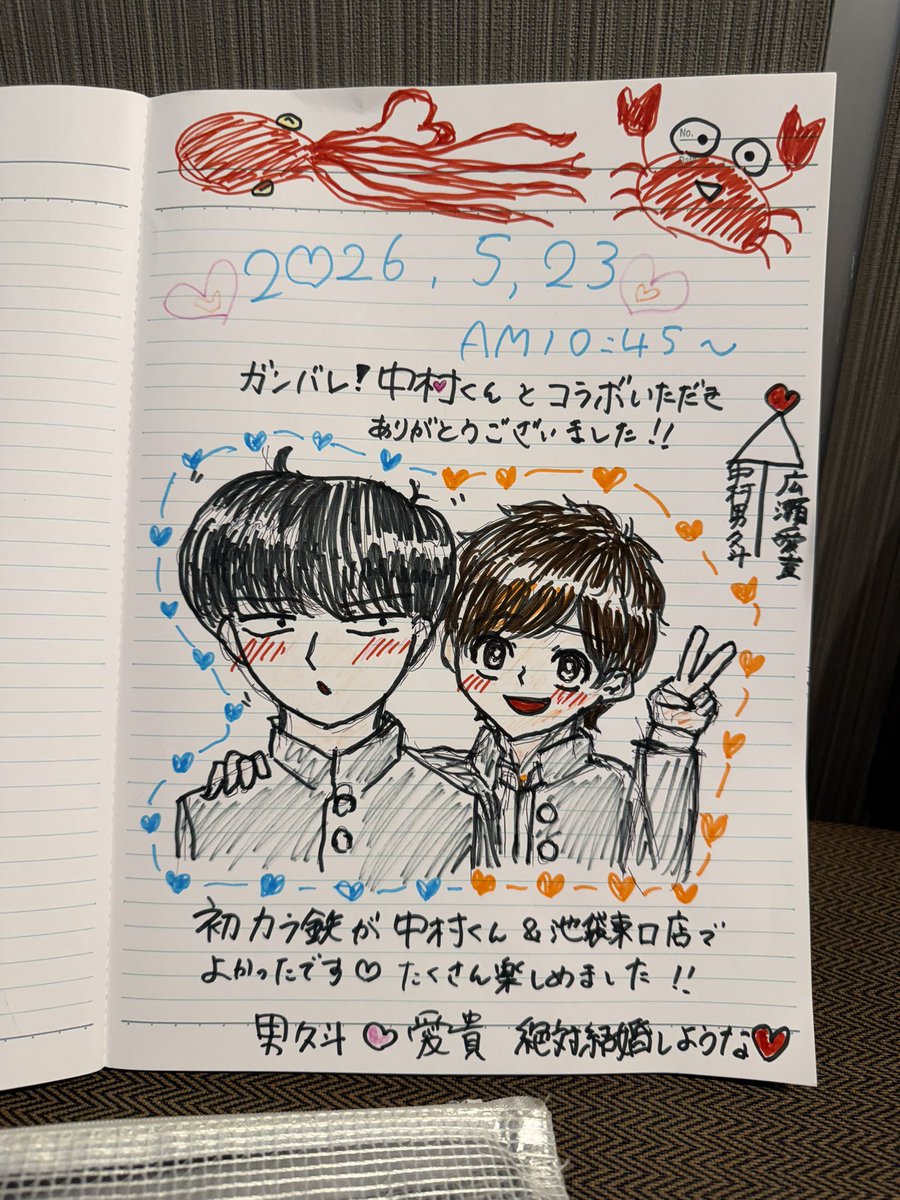 No.
2026.5,23
AM10:45~
ガンバレ!中村くんとコラボいただき
ありがとうございました!!
中村男久斗
広瀬愛貴
初カラ鉄が中村くん&池袋東口店で
よかったです♡たくさん楽しめました!!
男久斗♡愛貴 絶対結婚しような♥